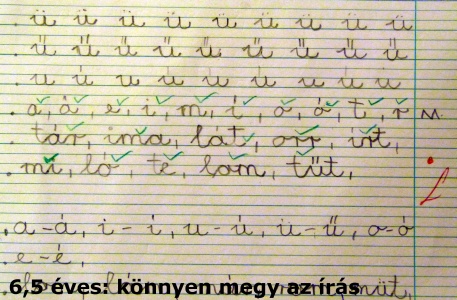 ü ü ü ü ü ü ü ü ü
ű ű ű ű ű ű ű ű ű
u u u u u u u u u
a, á, e, i, m, í, o, ó, t, r M
tár, ima, lat, orr, írt,
mi, ló, te, lom, tűt,
a-á, i-í, u-ú, ü-ű, o-ó
e-é,
6,5 éves: könnyen megy az írás